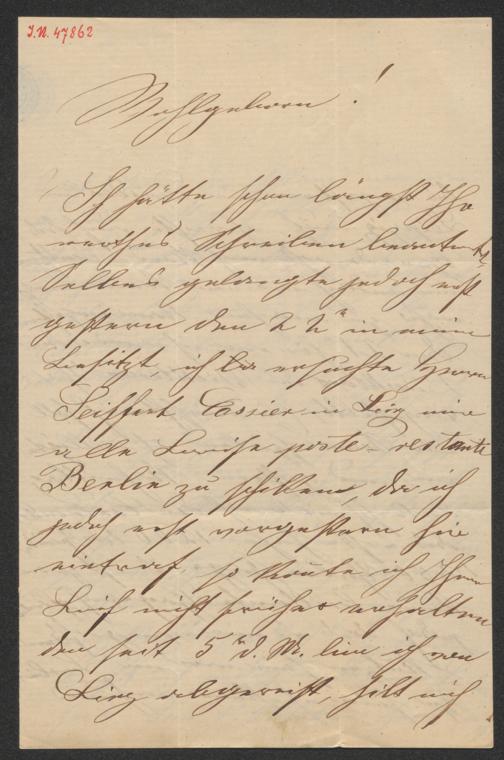 J.N. 47862
Wohlgeborn !
Ich hätte schon längst Ihr
werthes Schreiben beantwortet,
Selbes gelangte jedoch erst
gestern den 22t in meine
Besitzt, ich ersuchte Herrn
Seiffert Cassier in Linz mir
alle Briefe poste-restante
Berlin zu schikken, da ich
jedoch erst vorgestern hier
eintraf so konnte ich Ihren
Brief nicht früher erhalten
den seit 5t d. M. bin ich von
Linz abgereist, hilt mich